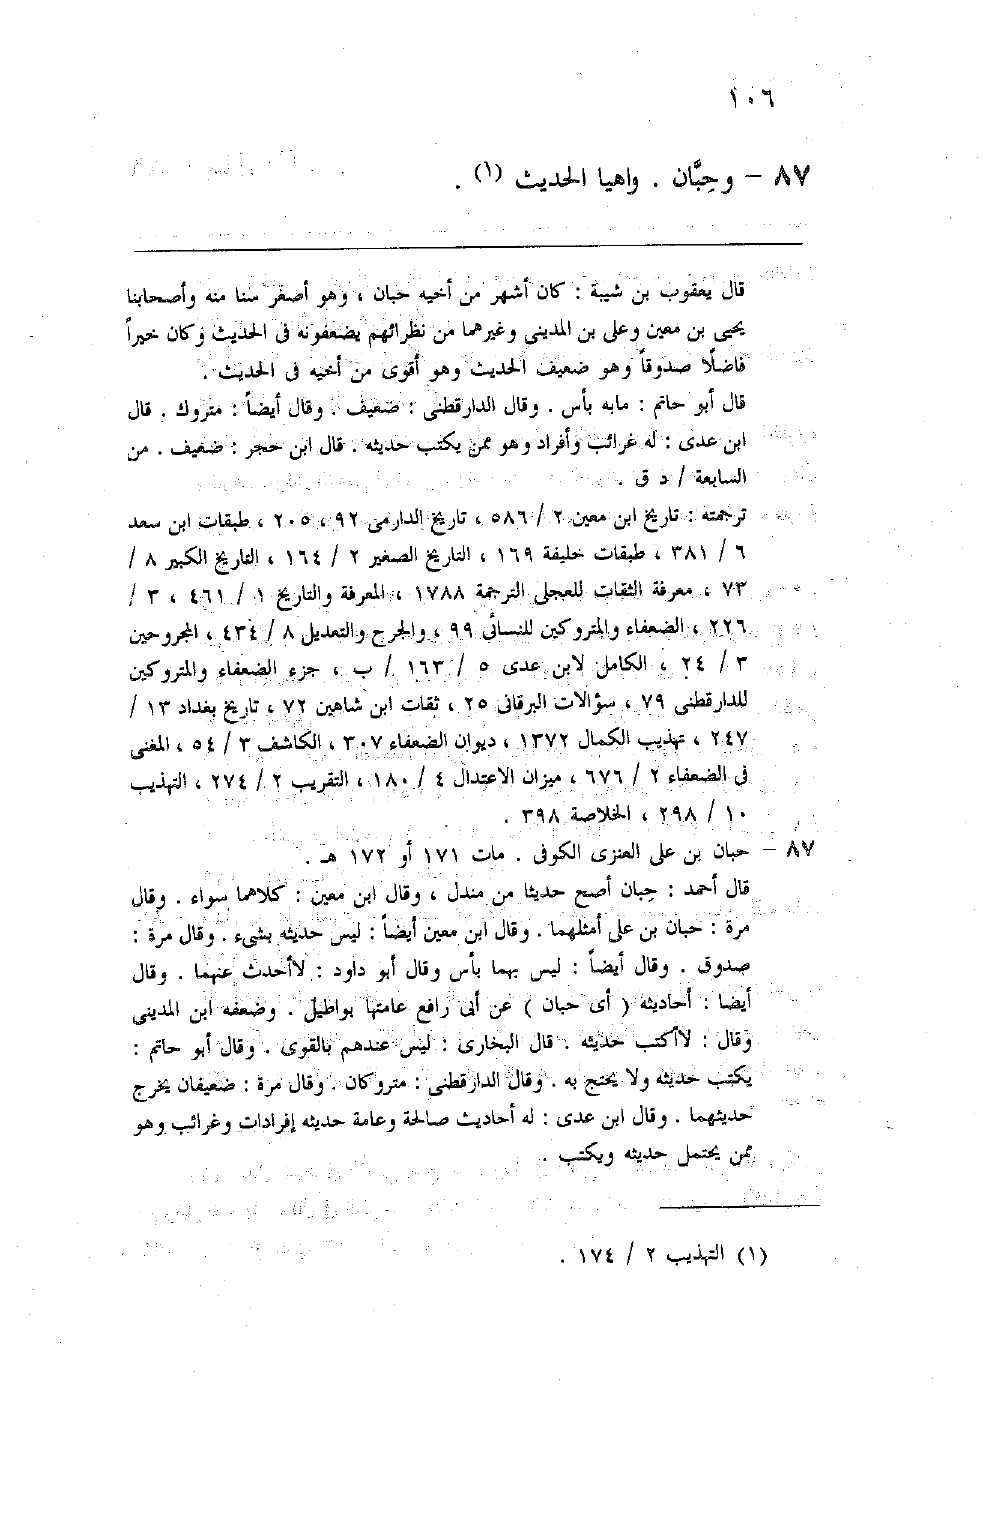 ١٠٦
٨٧ - وحِبَّان . واهيا الحديث (١) .
قال يعقوب بن شيبة : كان أشهر من أخيه حبان ، وهو أصغر سنا منه وأصحابنا
يحيى بن معين وعلى بن المدينى وغيرهما من نظرائهم يضعفونه فى الحديث وكان خيراً
فاضلًا صدوقاً وهو ضعيف الحديث وهو أقوى من أخيه فى الحديث .
قال أبو حاتم : مابه بأس . وقال الدارقطنى : ضعيف . وقال أيضاً : متروك . قال
ابن عدى : له غرائب وأفراد وهو ممن يكتب حديثه . قال ابن حجر : ضعيف . من
السابعة / د ق .
ترجمته : تاريخ ابن معين ٢ / ٥٨٦ ، تاريخ الدارمى ٩٢ ، ٢٠٥ ، طبقات ابن سعد
٦ / ٣٨١ ، طبقات خليفة ١٦٩ ، التاريخ الصغير ٢ / ١٦٤ ، التاريخ الكبير ٨ /
٧٣ ، معرفة الثقات للعجلى الترجمة ١٧٨٨ ، المعرفة والتاريخ ١ / ٤٦١ ، ٣ /
٢٢٦ ، الضعفاء والمتروكين للنسائى ٩٩ ، والجرح والتعديل ٨ / ٤٣٤ ، المجروحين
٣ / ٢٤ ، الكامل لابن عدى ٥ / ١٦٣ / ب ، جزء الضعفاء والمتروكين
للدارقطنى ٧٩ ، سؤالات البرقانى ٢٥ ، ثقات ابن شاهين ٧٢ ، تاريخ بغداد ١٣ /
٢٤٧ ، تهذيب الكمال ١٣٧٢ ، ديوان الضعفاء ٣٠٧ ، الكاشف ٣ / ٥٤ ، المغنى
فى الضعفاء ٢ / ٦٧٦ ، ميزان الاعتدال ٤ / ١٨٠ ، التقريب ٢ / ٢٧٤ ، التهذيب
١٠ / ٢٩٨ ، الخلاصة ٣٩٨ .
٨٧ - حبان بن على العنزى الكوفى . مات ١٧١ أو ١٧٢ هـ .
قال أحمد : حِبان أصح حديثا من مندل ، وقال ابن معين : كلاهما سواء . وقال
مرة : حبان بن على أمثلهما . وقال ابن معين أيضاً : ليس حديثه بشىء . وقال مرة :
صدوق . وقال أيضاً : ليس بهما بأس وقال أبو داود : لاأحدث عنهما . وقال
أيضا : أحاديثه ( أى حبان ) عن أبى رافع عامتها بواطيل . وضعفه ابن المدينى
وقال : لاأكتب حديثه . قال البخارى : ليس عندهم بالقوى . وقال أبو حاتم :
يكتب حديثه ولا يحتج به . وقال الدارقطنى : متروكان . وقال مرة : ضعيفان يخرج
حديثهما . وقال ابن عدى : له أحاديث صالحة وعامة حديثه إفرادات وغرائب وهو
ممن يحتمل حديثه ويكتب .
(١) التهذيب ٢ / ١٧٤ .